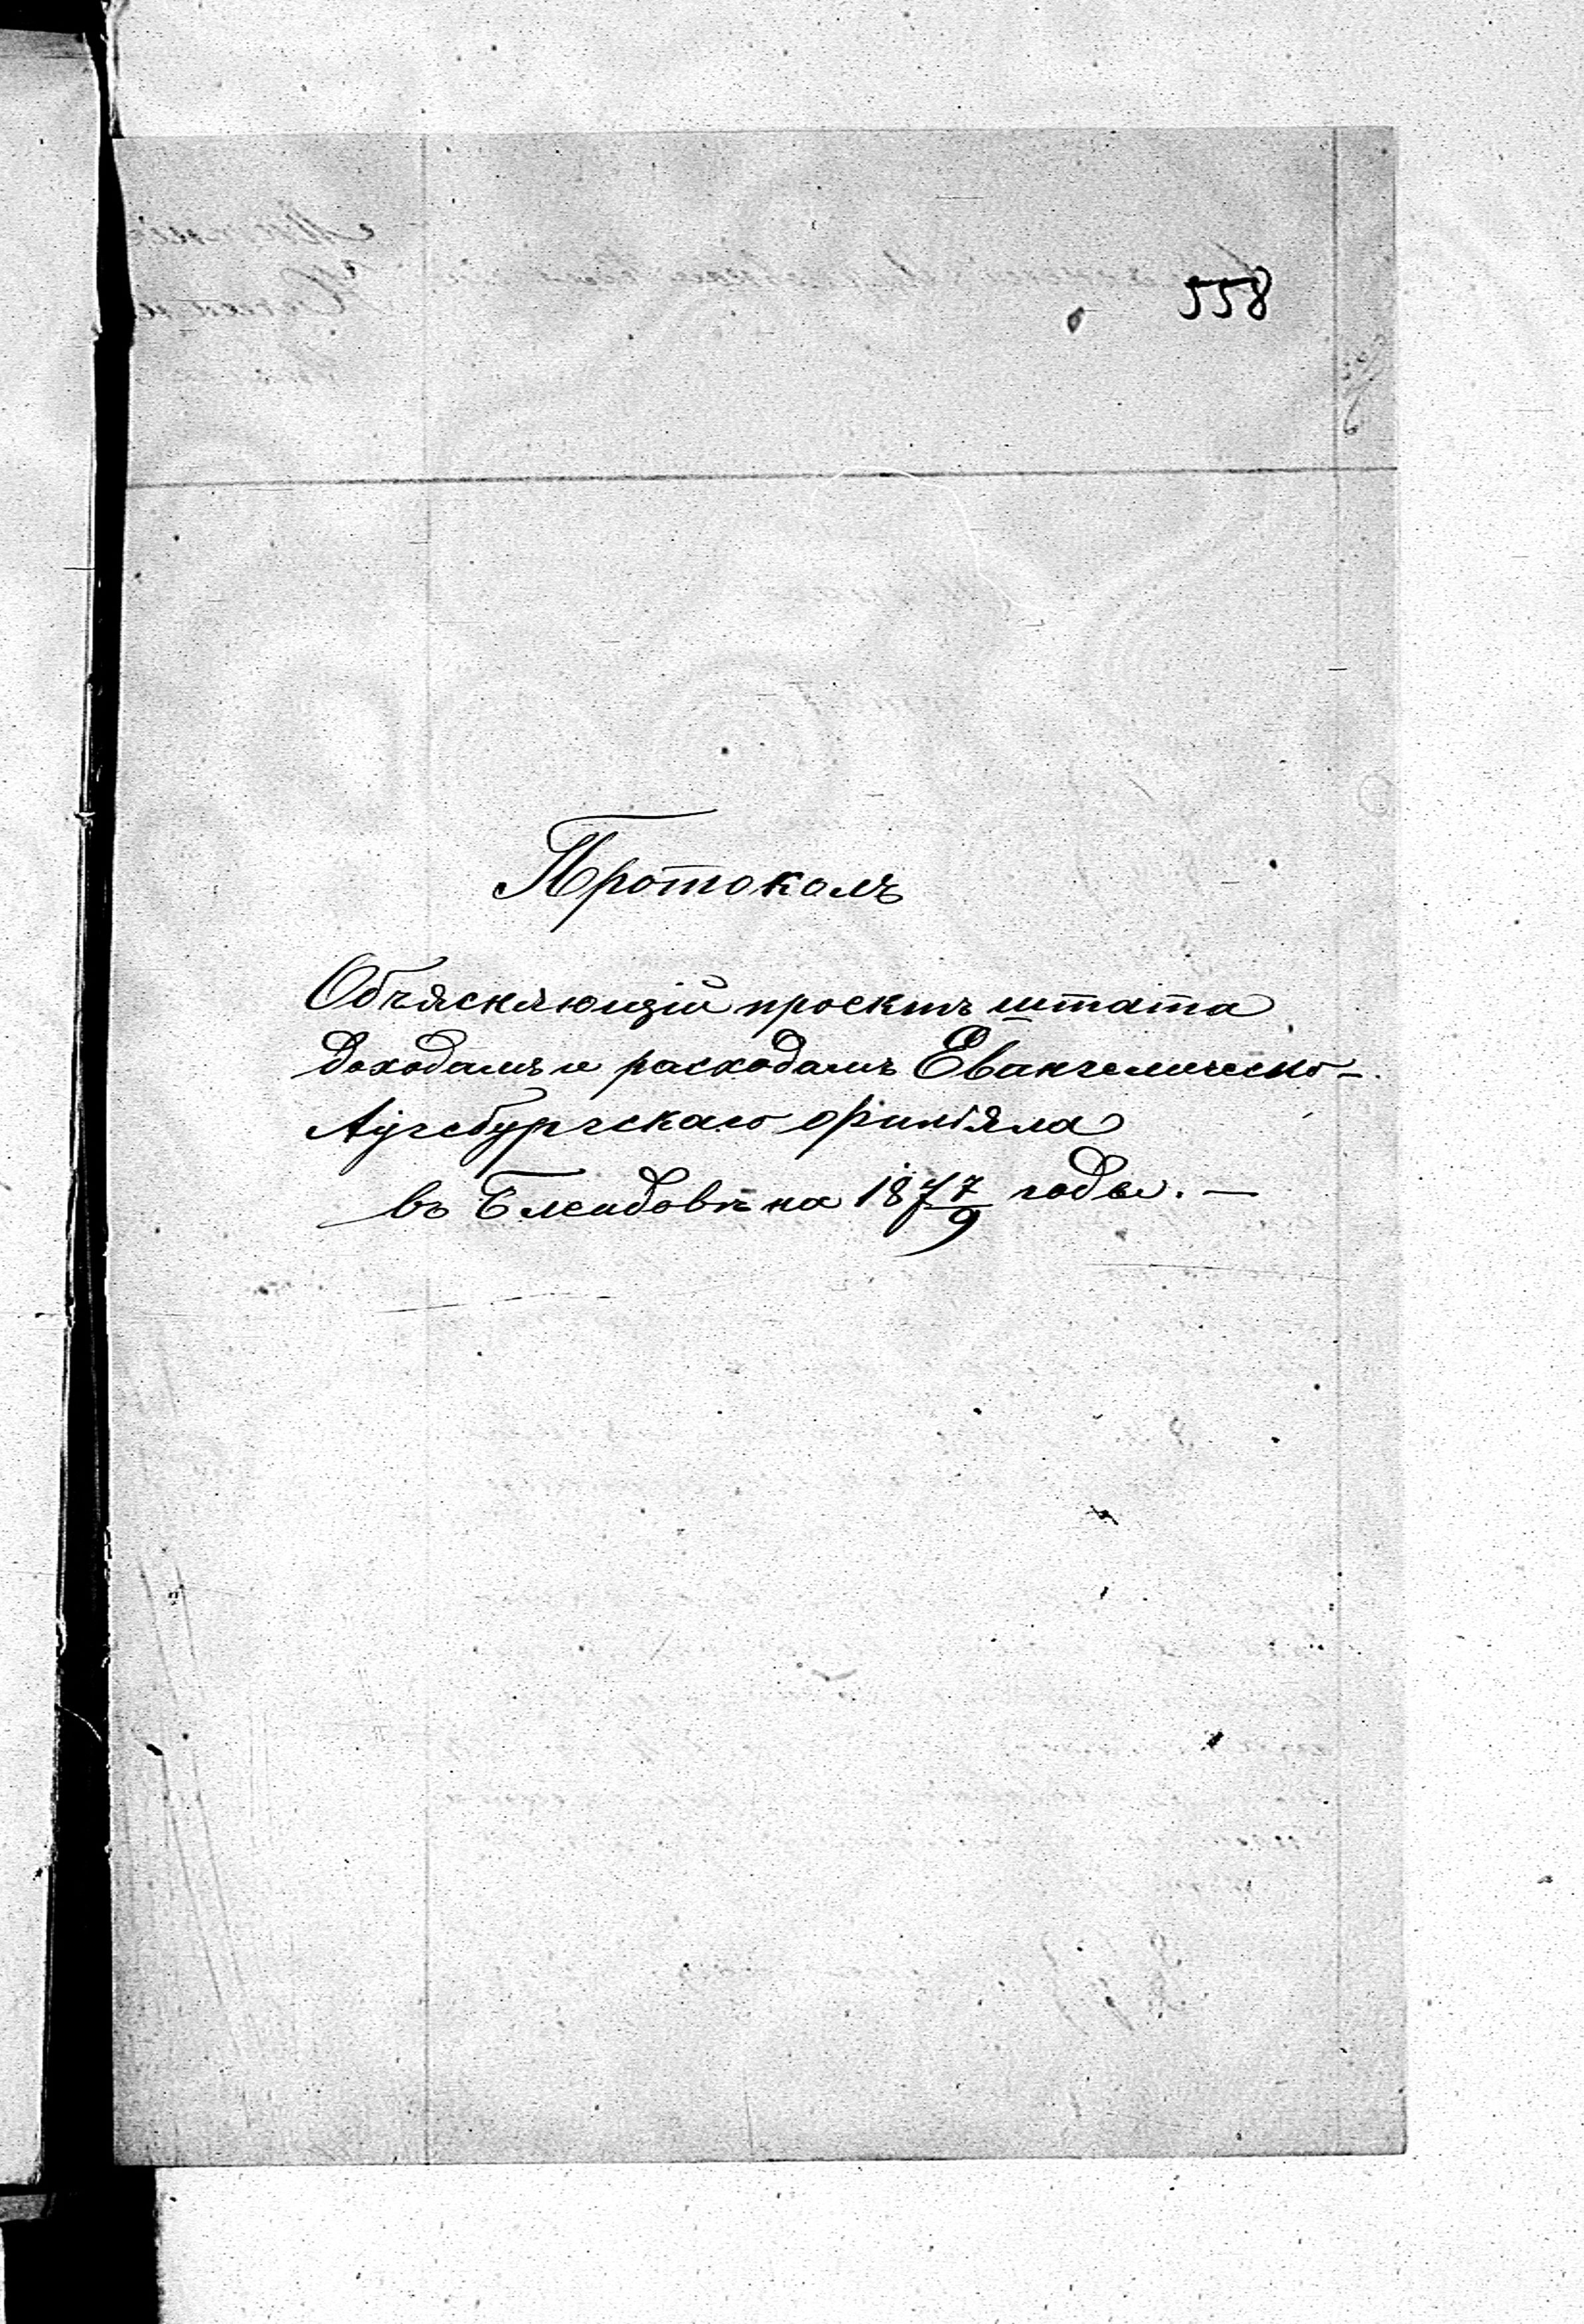 558
Протоколъ
Объясняющій проектъ штата
доходамъ и расходамъ Евангелическо-
Аугсбургскаго филіяла
въ Блендовѣ на 1877/9 годы. —